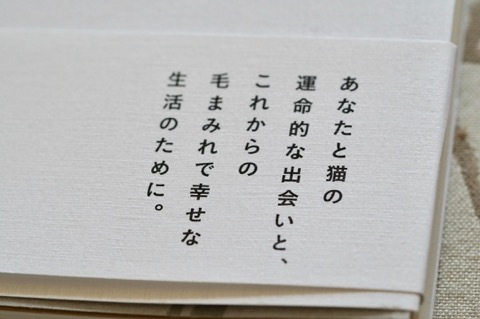 あなたと猫の
運命的な出会いと、
これからの
毛まみれで幸せな
生活のために。